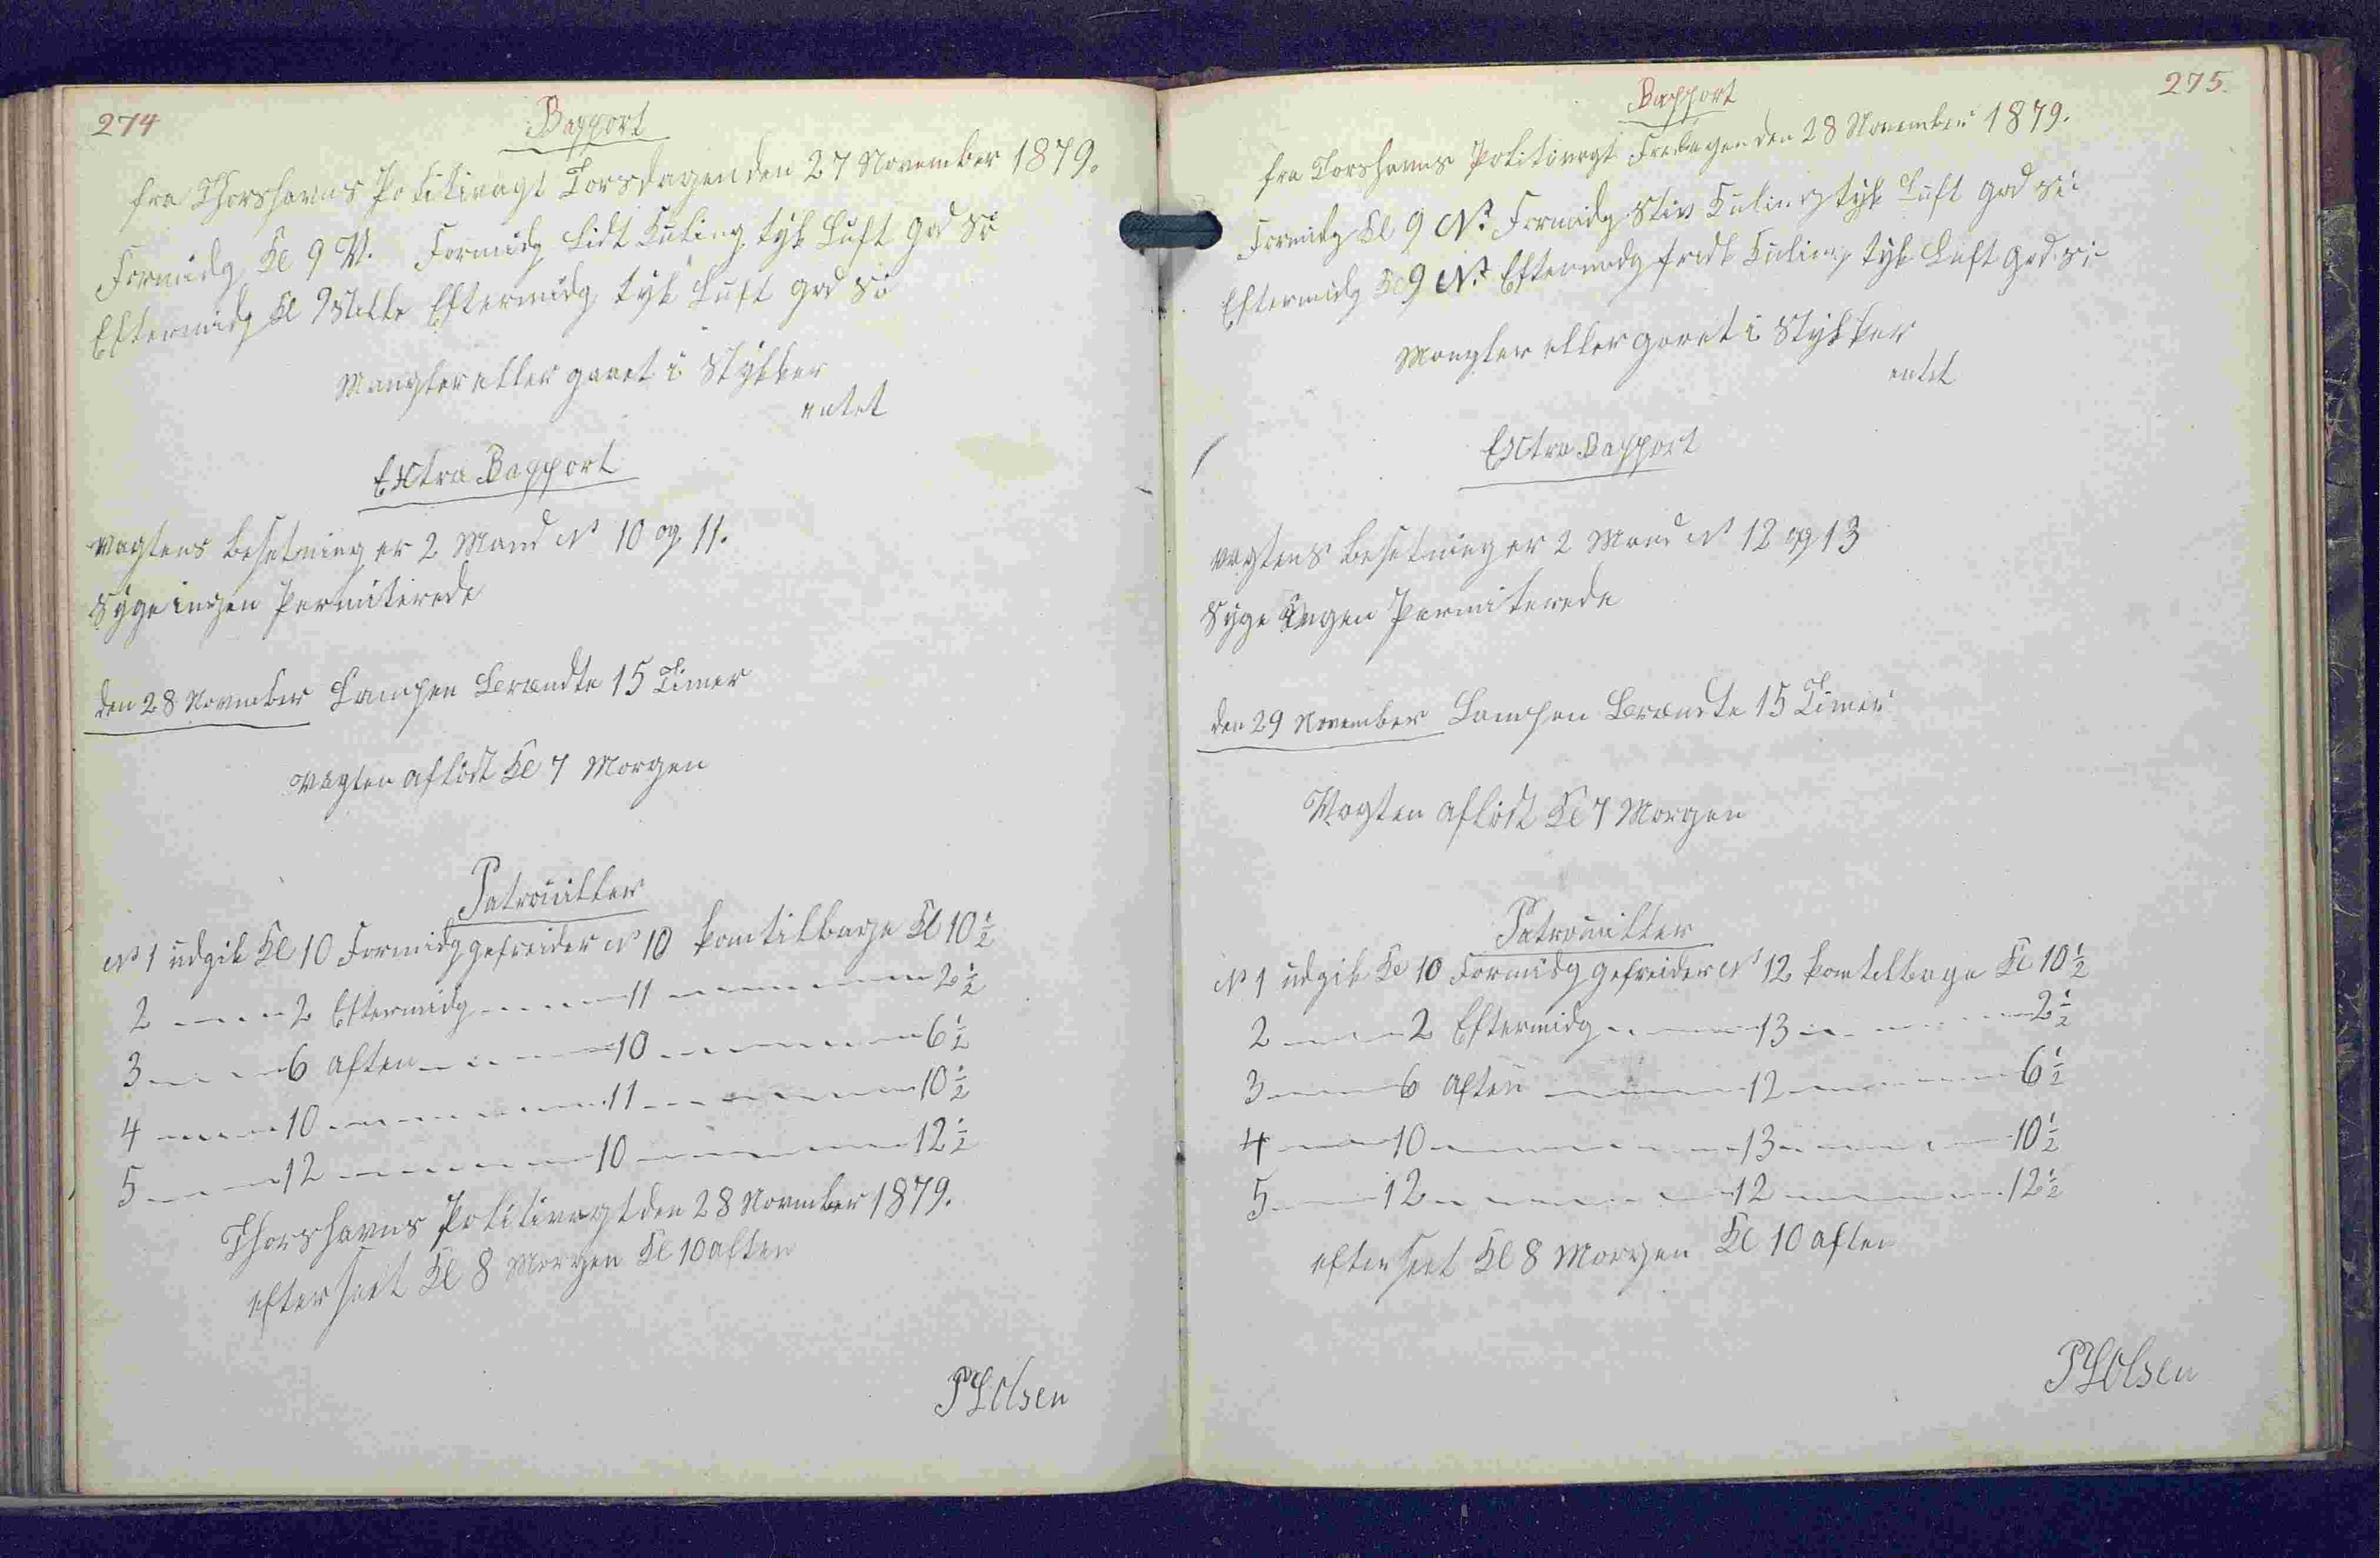 274
Rapport
fra Thorshavns Politivagt Torsdagen den 27 November 1879.
Formidg Kl 9 V. Formidg lidt Kuling tyk Luft god Sö
Eftermidg Kl 9 Stille Eftermidg tyk Luft god Sö
Mangler eller gaaet i Stykker
entet
Extra Rapport
Vagtens besetning er 2 Mand No 10 og 11.
Syge ingen Permiterede
den 28 November Lampen Brændte 15 Timer
Vagten aflöst Kl 7 Morgen
Patrouiller
No 1 udgik Kl 10 Formidg gefreider No 10 kom tilbage Kl 10 1/2
2 - - - - 2 Eftermidg - - - - 11 - - - - - - 2 1/2
3 - - - - 6 aften - - - - 10 - - - - - - 6 1/2
4 - - - - 10 - - - - - - 11 - - - - - - 10 1/2
5 - - - - 12 - - - - - - 10 - - - - - - 12 1/2
Thorshavns Politivagt den 28 November 1879.
efterseet Kl 8 Morgen Kl 10 aften
PLOlsen
275.
Rapport
fra Torshavns Politivagt Fredagen den 28 November 1879.
Formidg Kl 9 N. Formidg Stiv Kuling tyk Luft god Sö
Eftermidg Kl 9 N. Eftermidg fridsk Kuling tyk Luft god Sö
Mangler eller gaaet i Stykker
entet
Extra Rapport
Vagtens besetning er 2 Mand No 12 og 13
Syge Ingen Permiterede
den 29 November Lampen Brændte 15 Timer
Vagten aflöst Kl 7 Morgen
Patrouiller
No 1 udgik Kl 10 Formidg gefreider No 12 kom tilbage Kl 10 1/2
2 - - - - 2 Eftermidg - - - - 13 - - - - - - 2 1/2
3 - - - - 6 aften - - - - 12 - - - - - - 6 1/2
4 - - - - 10 - - - - - - 13 - - - - - - 10 1/2
5 - - - - 12 - - - - - - 12 - - - - - - 12 1/2
efterseet Kl 8 Morgen Kl 10 aften
PLOlsen